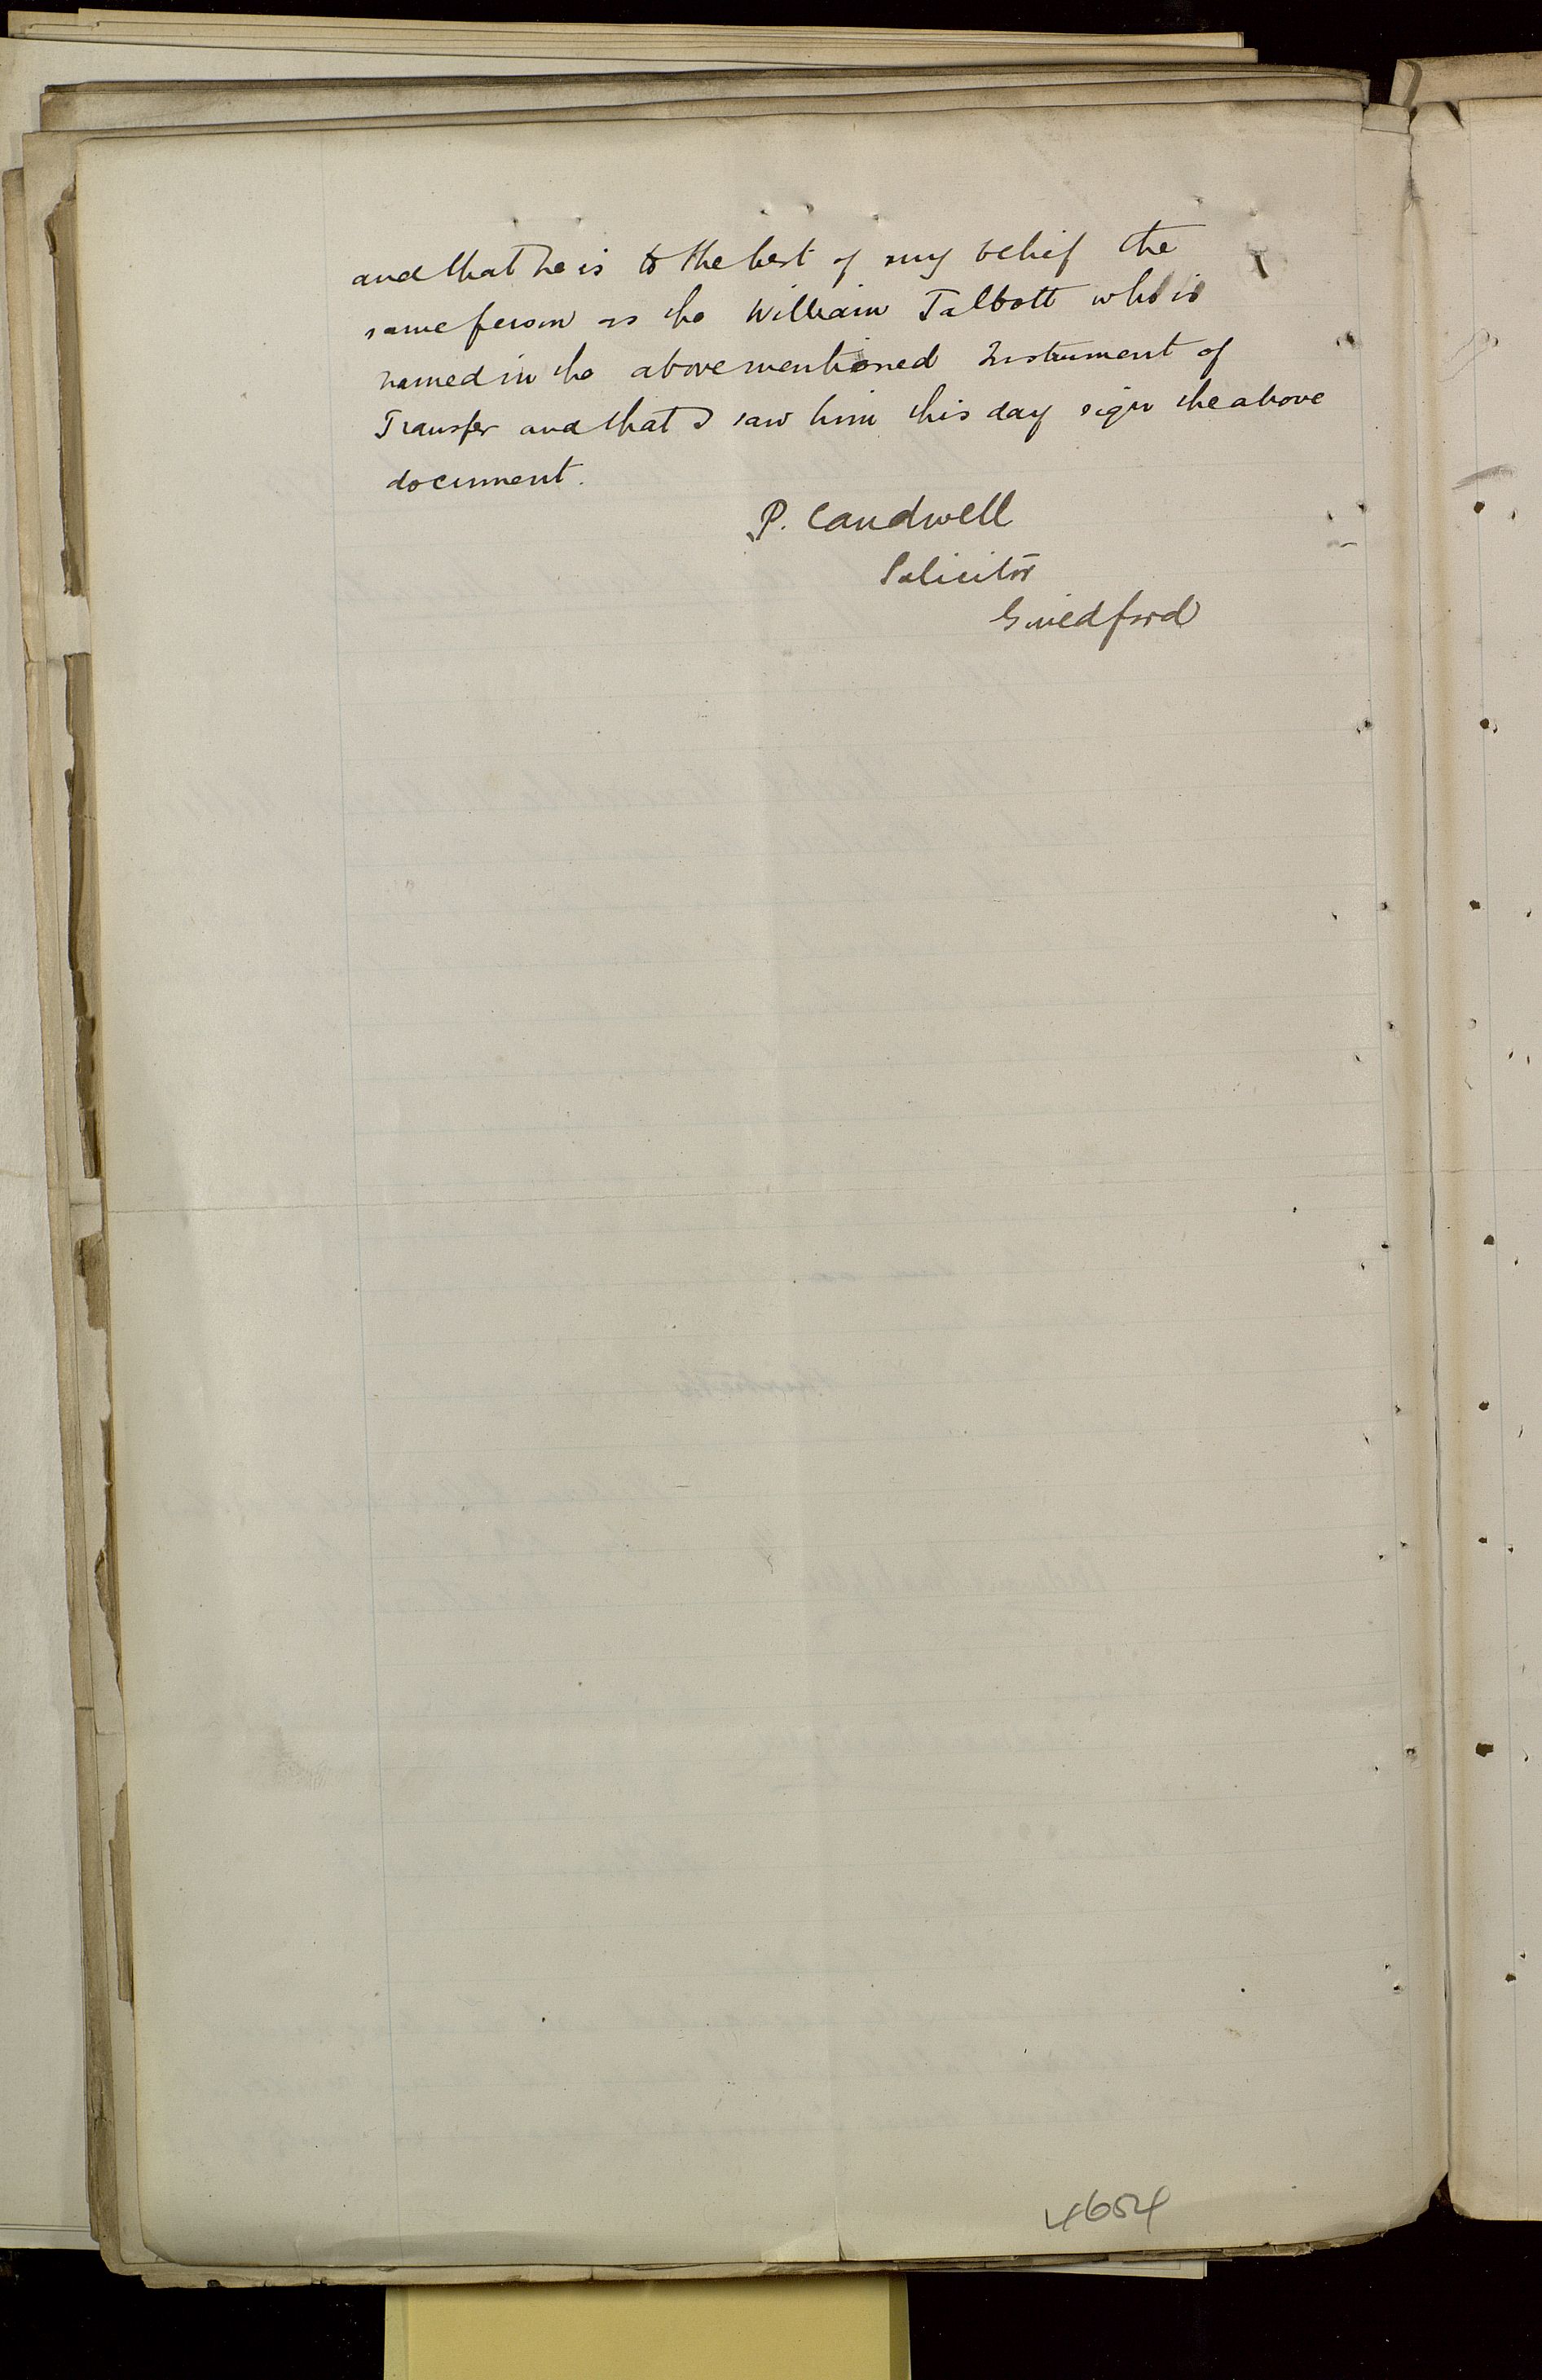 and that he is to the best of my belief the
same person as the William Talbott who is
named in the abovementioned Instrument of
Transfer and that I saw him this day sign the above
document.
P. Caudwell
Solicitor
Guildford
4654